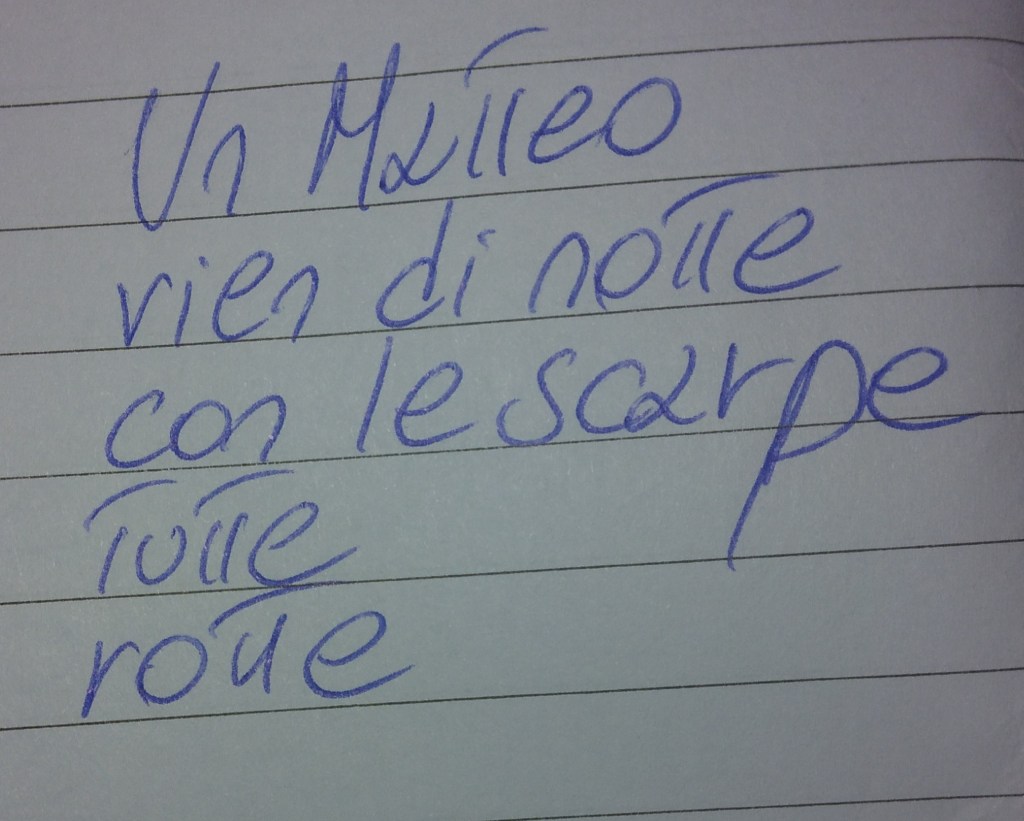 Un Matteo
vien di notte
con le scarpe
tutte
rotte